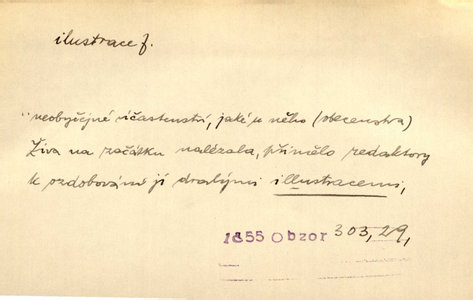 ilustrace f.
neobyčejné účastenství, jaké u něho (obecenstva)
Živa na začátku nalézala, přimělo redaktory
k ozdobování jí drahými illustracemi,
1855 Obzor 303,29,